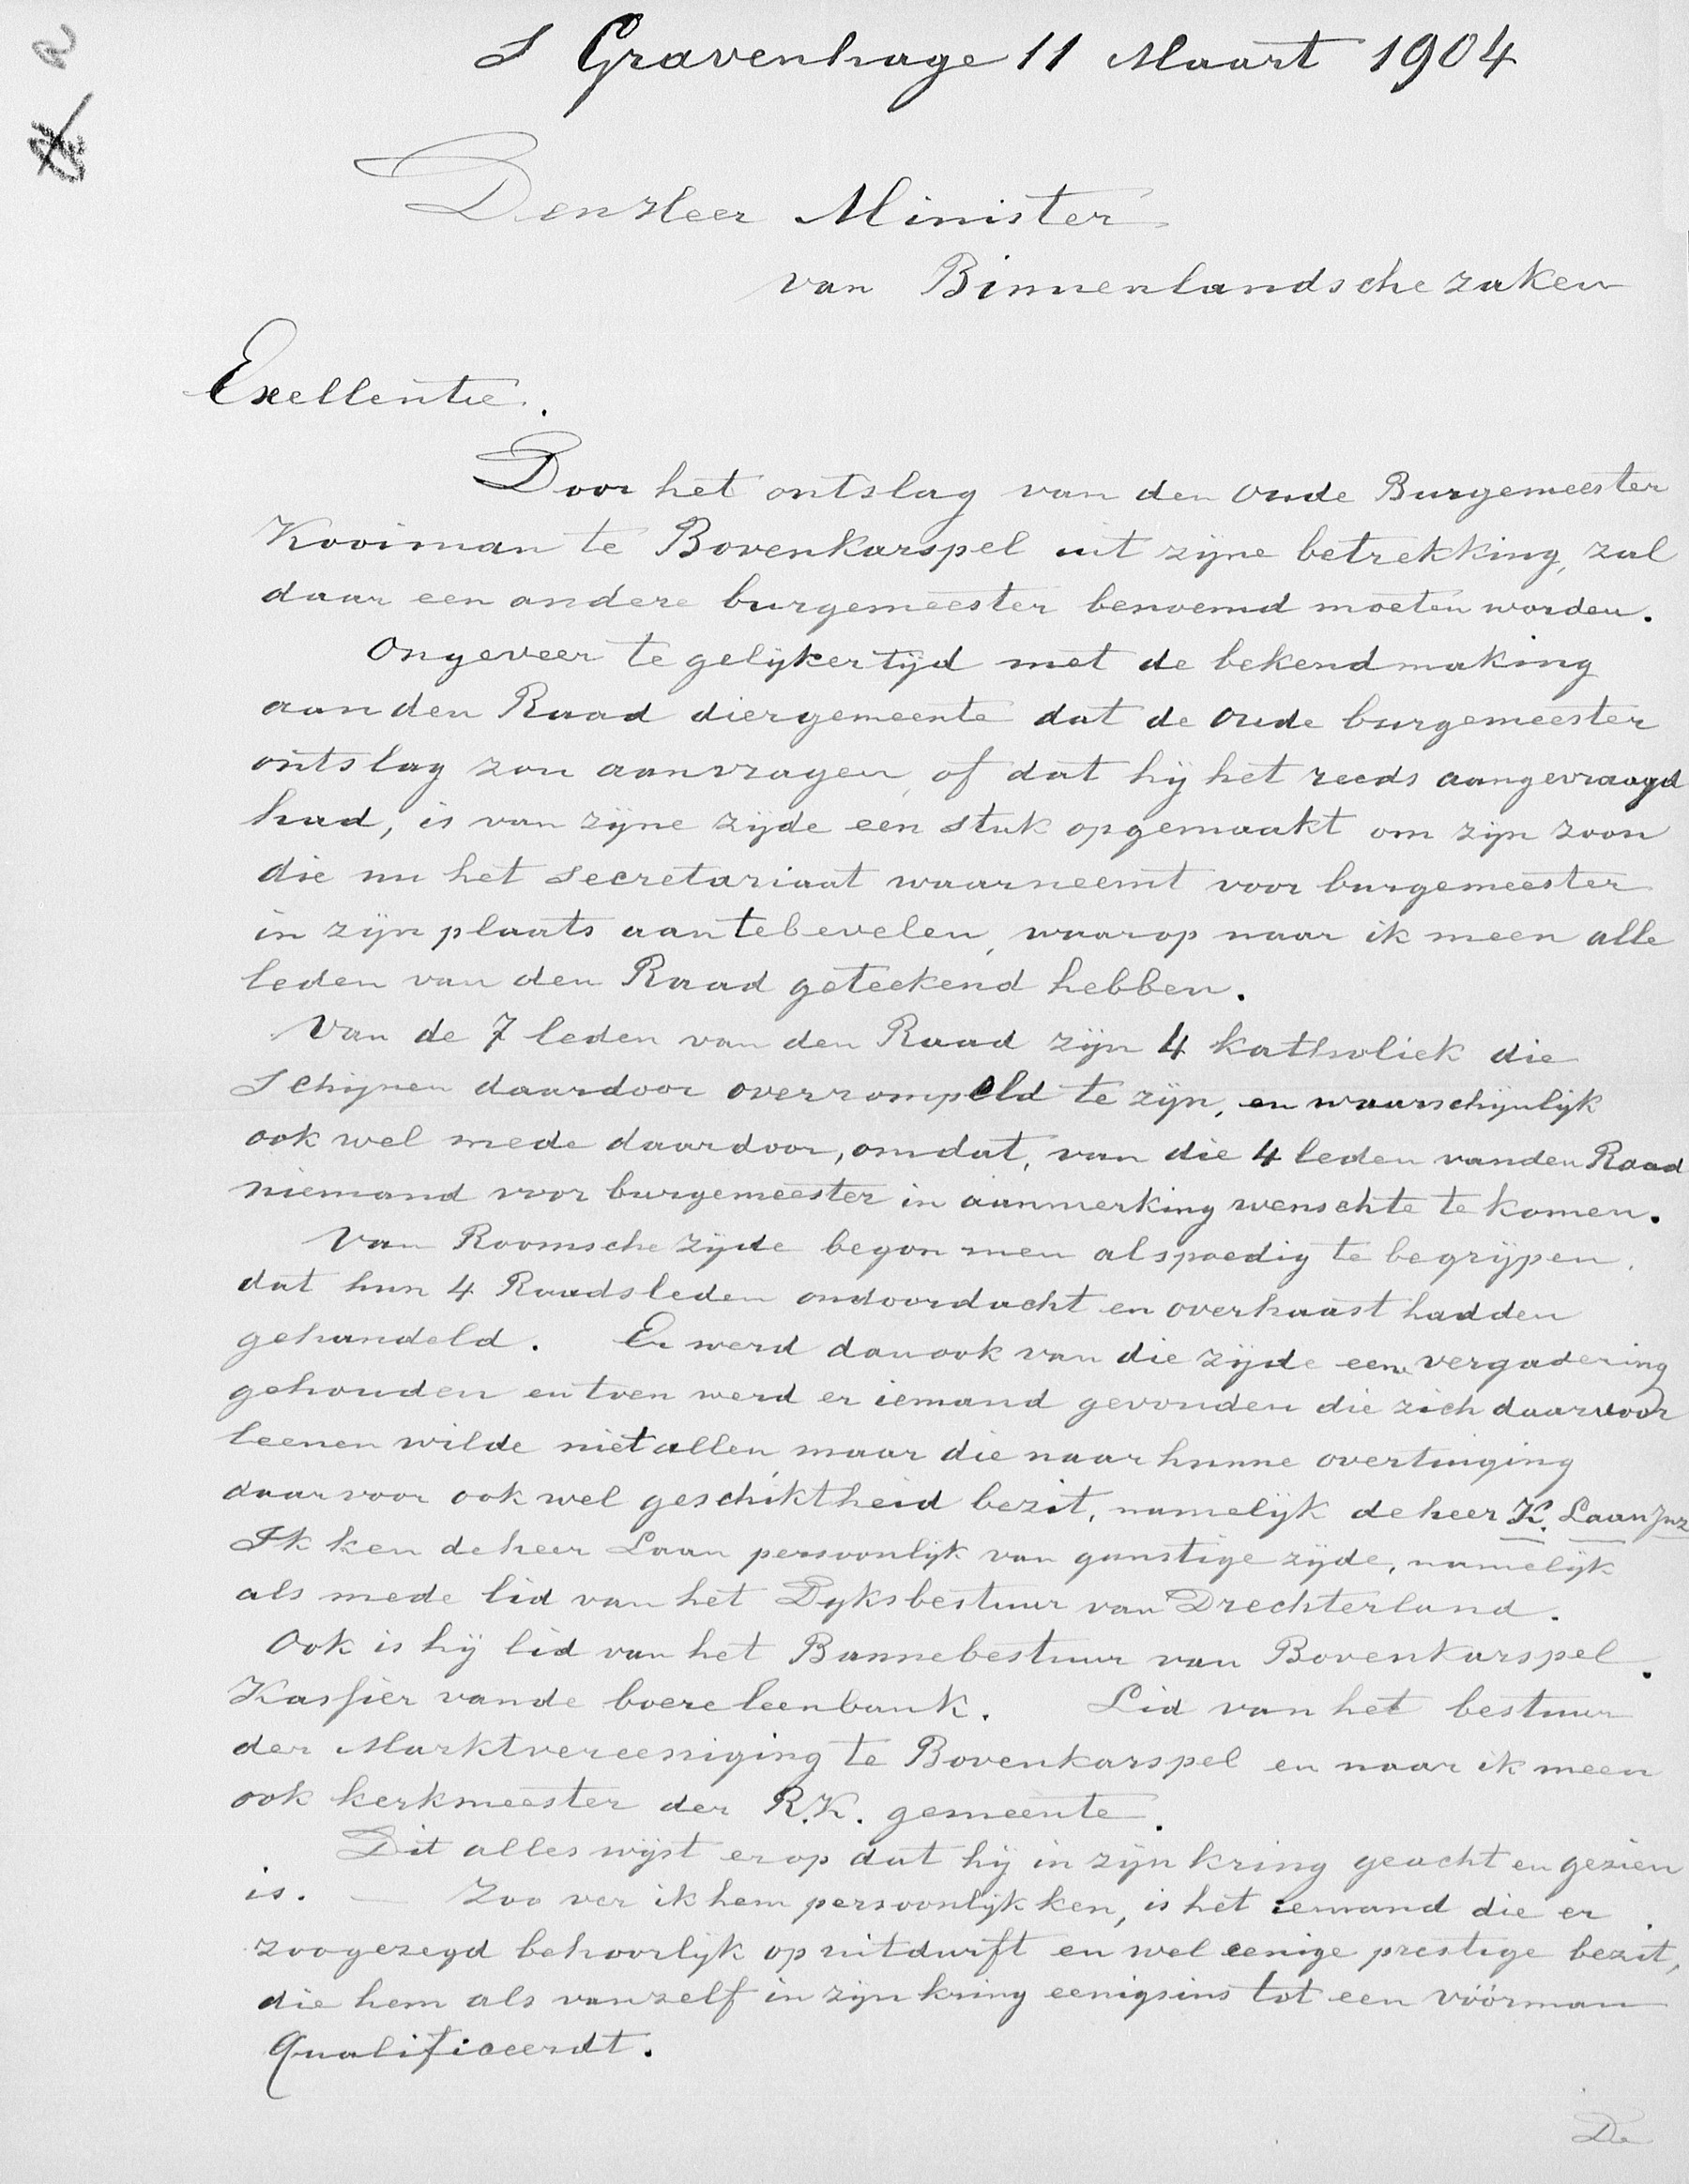 S Gravenhage 11 Maart 1904
Den Heer Minister
van Binnenlandsche zaken
Exellentie.
Door het ontslag van den oude Burgemeester
Kooiman te Bovenkarspel uit zijne betrekking, zal
daar een andere burgemeester benoemd moeten worden.
Ongeveer te gelijkertijd met de bekendmaking
aan den Raad diergemeente dat de oude burgemeester
ontslag zou aanvragen, of dat hij het reeds aangevraagd
had, is van zijne zijde een stuk opgemaakt om zijn zoon
die nu het secretariaat waarneemt voor burgemeester
in zijn plaats aantebevelen, waarop naar ik meen alle
leden van den Raad geteekend hebben.
Van de 7 leden van den Raad zijn 4 katholiek die
Schijnen daardoor overrompeld te zijn, en waarschijnlijk
ook wel mede daardoor, omdat, van die 4 leden vanden Raad
niemand voor burgemeester in aanmerking wenschte te komen.
Van Roomsche zijde begon men alspoedig te begrijpen,
dat hun 4 Raadsleden ondoordacht en overhaast hadden
gehandeld. Er werd dan ook van die zijde een vergadering
gehouden en toen werd er iemand gevonden die zich daarvoor
leenen wilde niet allen, maar die naar hunne overtuiging
daarvoor ook wel geschiktheid bezit, namelijk de heer K. Laan Jnz
Ik ken de heer Laan persoonlijk van gunstige zijde, namelijk
als mede lid van het Dyksbestuur van Drechterland.
Ook is hij lid van het Bannebestuur van Bovenkarspel.
Kassier vande boereleenbank. Lid van het bestuur
der Marktvereeniging te Bovenkarspel en naar ik meen
ook kerkmeester der R.K. gemeente.
Dit alles wijst erop dat hij in zijn kring geacht en gezien
is. — Zoo ver ik hem persoonlijk ken, is het iemand die er
zoogezegd behoorlijk op uitdurft en wel eenige prestige bezit,
die hem als vanzelf in zijn kring eenigsins tot een vóórman
Qualificeerdt.
De